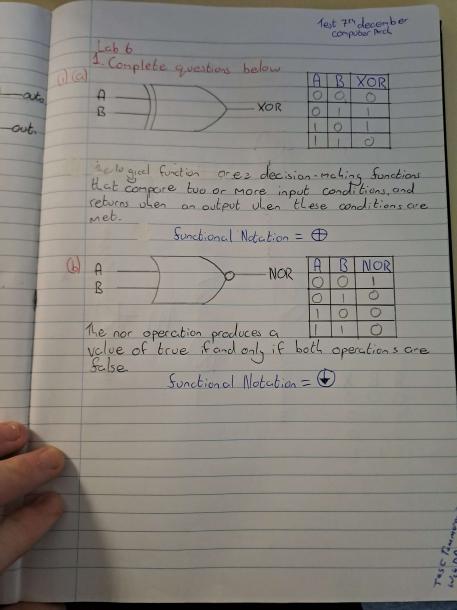 Test 7th december
computer Arch
Lab 6
1. Complete questions below
(i) (a)
A
B
XOR
A B XOR
0 0 0
0 1 1
1 0 1
1 1 0
logical function are decision-making functions
that compare two or more input conditions, and
returns when an output when these conditions are
met.
functional Notation = ⊕
(b)
A
B
NOR
A B NOR
0 0 1
0 1 0
1 0 0
1 1 0
The nor operation produces a
value of true if and only if both operations are
false
functional Notation =
out.
Test